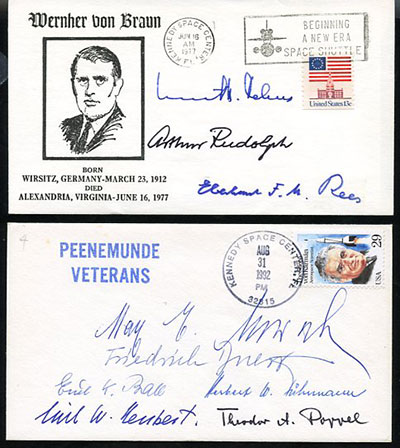 Wernher von Braun
KENNEDY SPACE CENTER, FL
JUN 16
AM
1977
BEGINNING
A NEW ERA
SPACE SHUTTLE
United States 13c
Arthur Rudolph
Eberhard F. M. Rees
BORN
WIRSITZ, GERMANY-MARCH 23, 1912
DIED
ALEXANDRIA, VIRGINIA-JUNE 16, 1977
PEENEMUNDE
VETERANS
KENNEDY SPACE CENTER, FL
AUG
31
1992
PM
32815
29
USA
Friedrich
Theodor A. Poppel